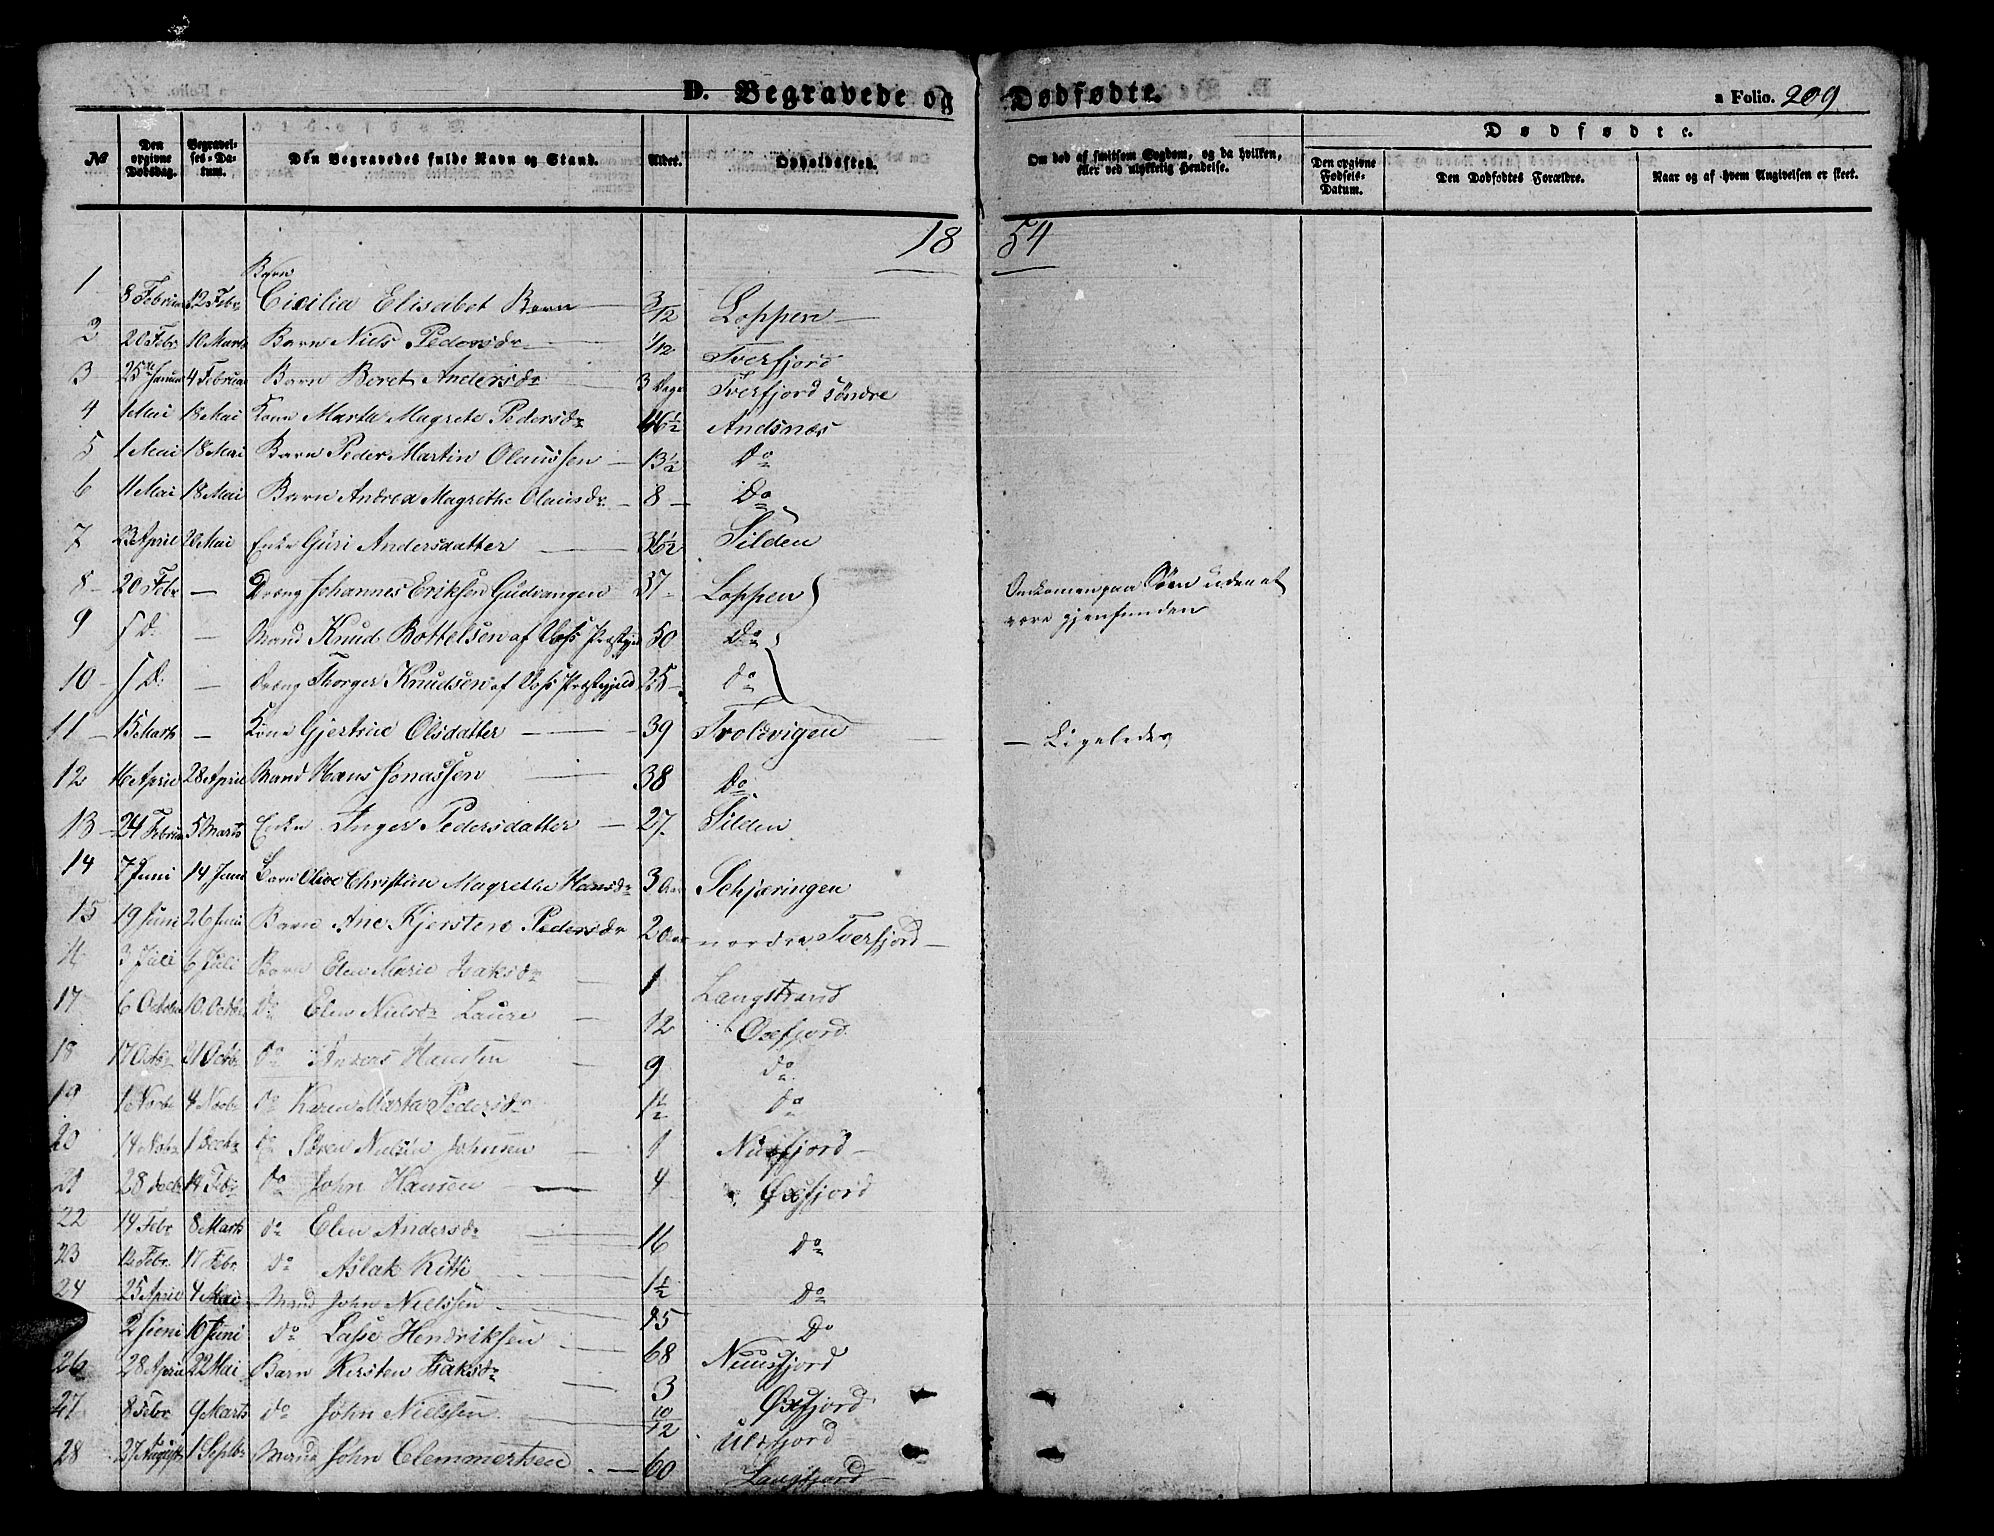 D. Begravede og Dødfødte.
a Folio. 209
No
Den opgivne Dødsdag.
Begravelses-Datum.
Den Begravedes fulde Navn og Stand.
Alder.
Opholdssted.
Om død af smitsom Sygdom, og da hvilken, eller ved ulykkelig Hendelse.
Dødfødte.
Den opgivne Fødsels-Datum.
Den Dødfødtes Forældre.
Naar og af hvem Angivelsen er skeet.
1854
1 8 Februar 12 Febr Barn Cicilia Elisabet Barn 3/12 Loppen
2 20 Febr 10 Marts Barn Niels Pedersdr 1/12 Tverfjord
3 25 Januar 4 Februar Barn Beret Andersdr 3 Dage Tverfjord søndre
4 1 Mai 18 Mai Kone Marta Magrete Pedersdr 46½ Andsnæs
5 1 Mai 18 Mai Barn Peder Martin Olaussen 13½ Do
6 11 Mai 18 Mai Barn Andrea Magrethe Olausdr 8 Do
7 23 April 20 Mai Enke Guri Andersdatter Silden
8 20 Febr — Dreng Johannes Eriksen Gudvangen 37 Loppen Omkomen paa Søen uden at
være gjenfunden
9 s D. — Mand Knud Bottelsen af Voss Præstgjeld 50 Do
10 s D. — Dreng Thorger Knudsen af Voss Præstegjeld 25 do
11 15 Marts — Kone Gjertrue Olsdatter 39 Troldvigen — Ligeledes
12 16 April 28 April Mand Hans Jonassen 38 Do
13 24 Februar 5 Marts Enke Inger Pedersdatter 27 Silden
14 7 Juni 14 Juni Barn Olive Christine Magrethe Hansdr 3 Aar Schjæringen
15 19 Juni 26 Juni Barn Ane Kjersten Pedersdr 2 Aar nordre Tverfjord
3 Juli 6 Juli Barn Elen Marie Isaksdr 1 Langstrand
17 6 October 10 Octbr do Elen Nielsdr Laure 12 Øxfjord
18 17 Octbr 21 Octbr do Anders Hansen 9 do
19 1 Novbr 4 Novbr do Karen Marta Pedersdr 1½ do
20 14 Novbr 1 Decbr do Søren Nielsen Johnsen 1 Nuvsfjord
21 28 Decbr 14 Febr do John Hansen 4 Øxfjord
22 14 Febr 8 Marts do Elen Andersdr 16 do
23 12 Febr 17 Febr do Aslak Kitti 1½ do
24 25 April 4 Mai Mand John Nielssen Do
2 Juni 10 Juni do Lasse Hendriksen 68 Nuusfjord
26 28 April 22 Mai Barn Kirsten Isaksdr 3 Øxfjord
27 8 Febr 9 Marts do John Nielssen 10/12 Ulsfjord
28 27 August 1 Septbr Mand John Clemmertsen 60 Langfjord